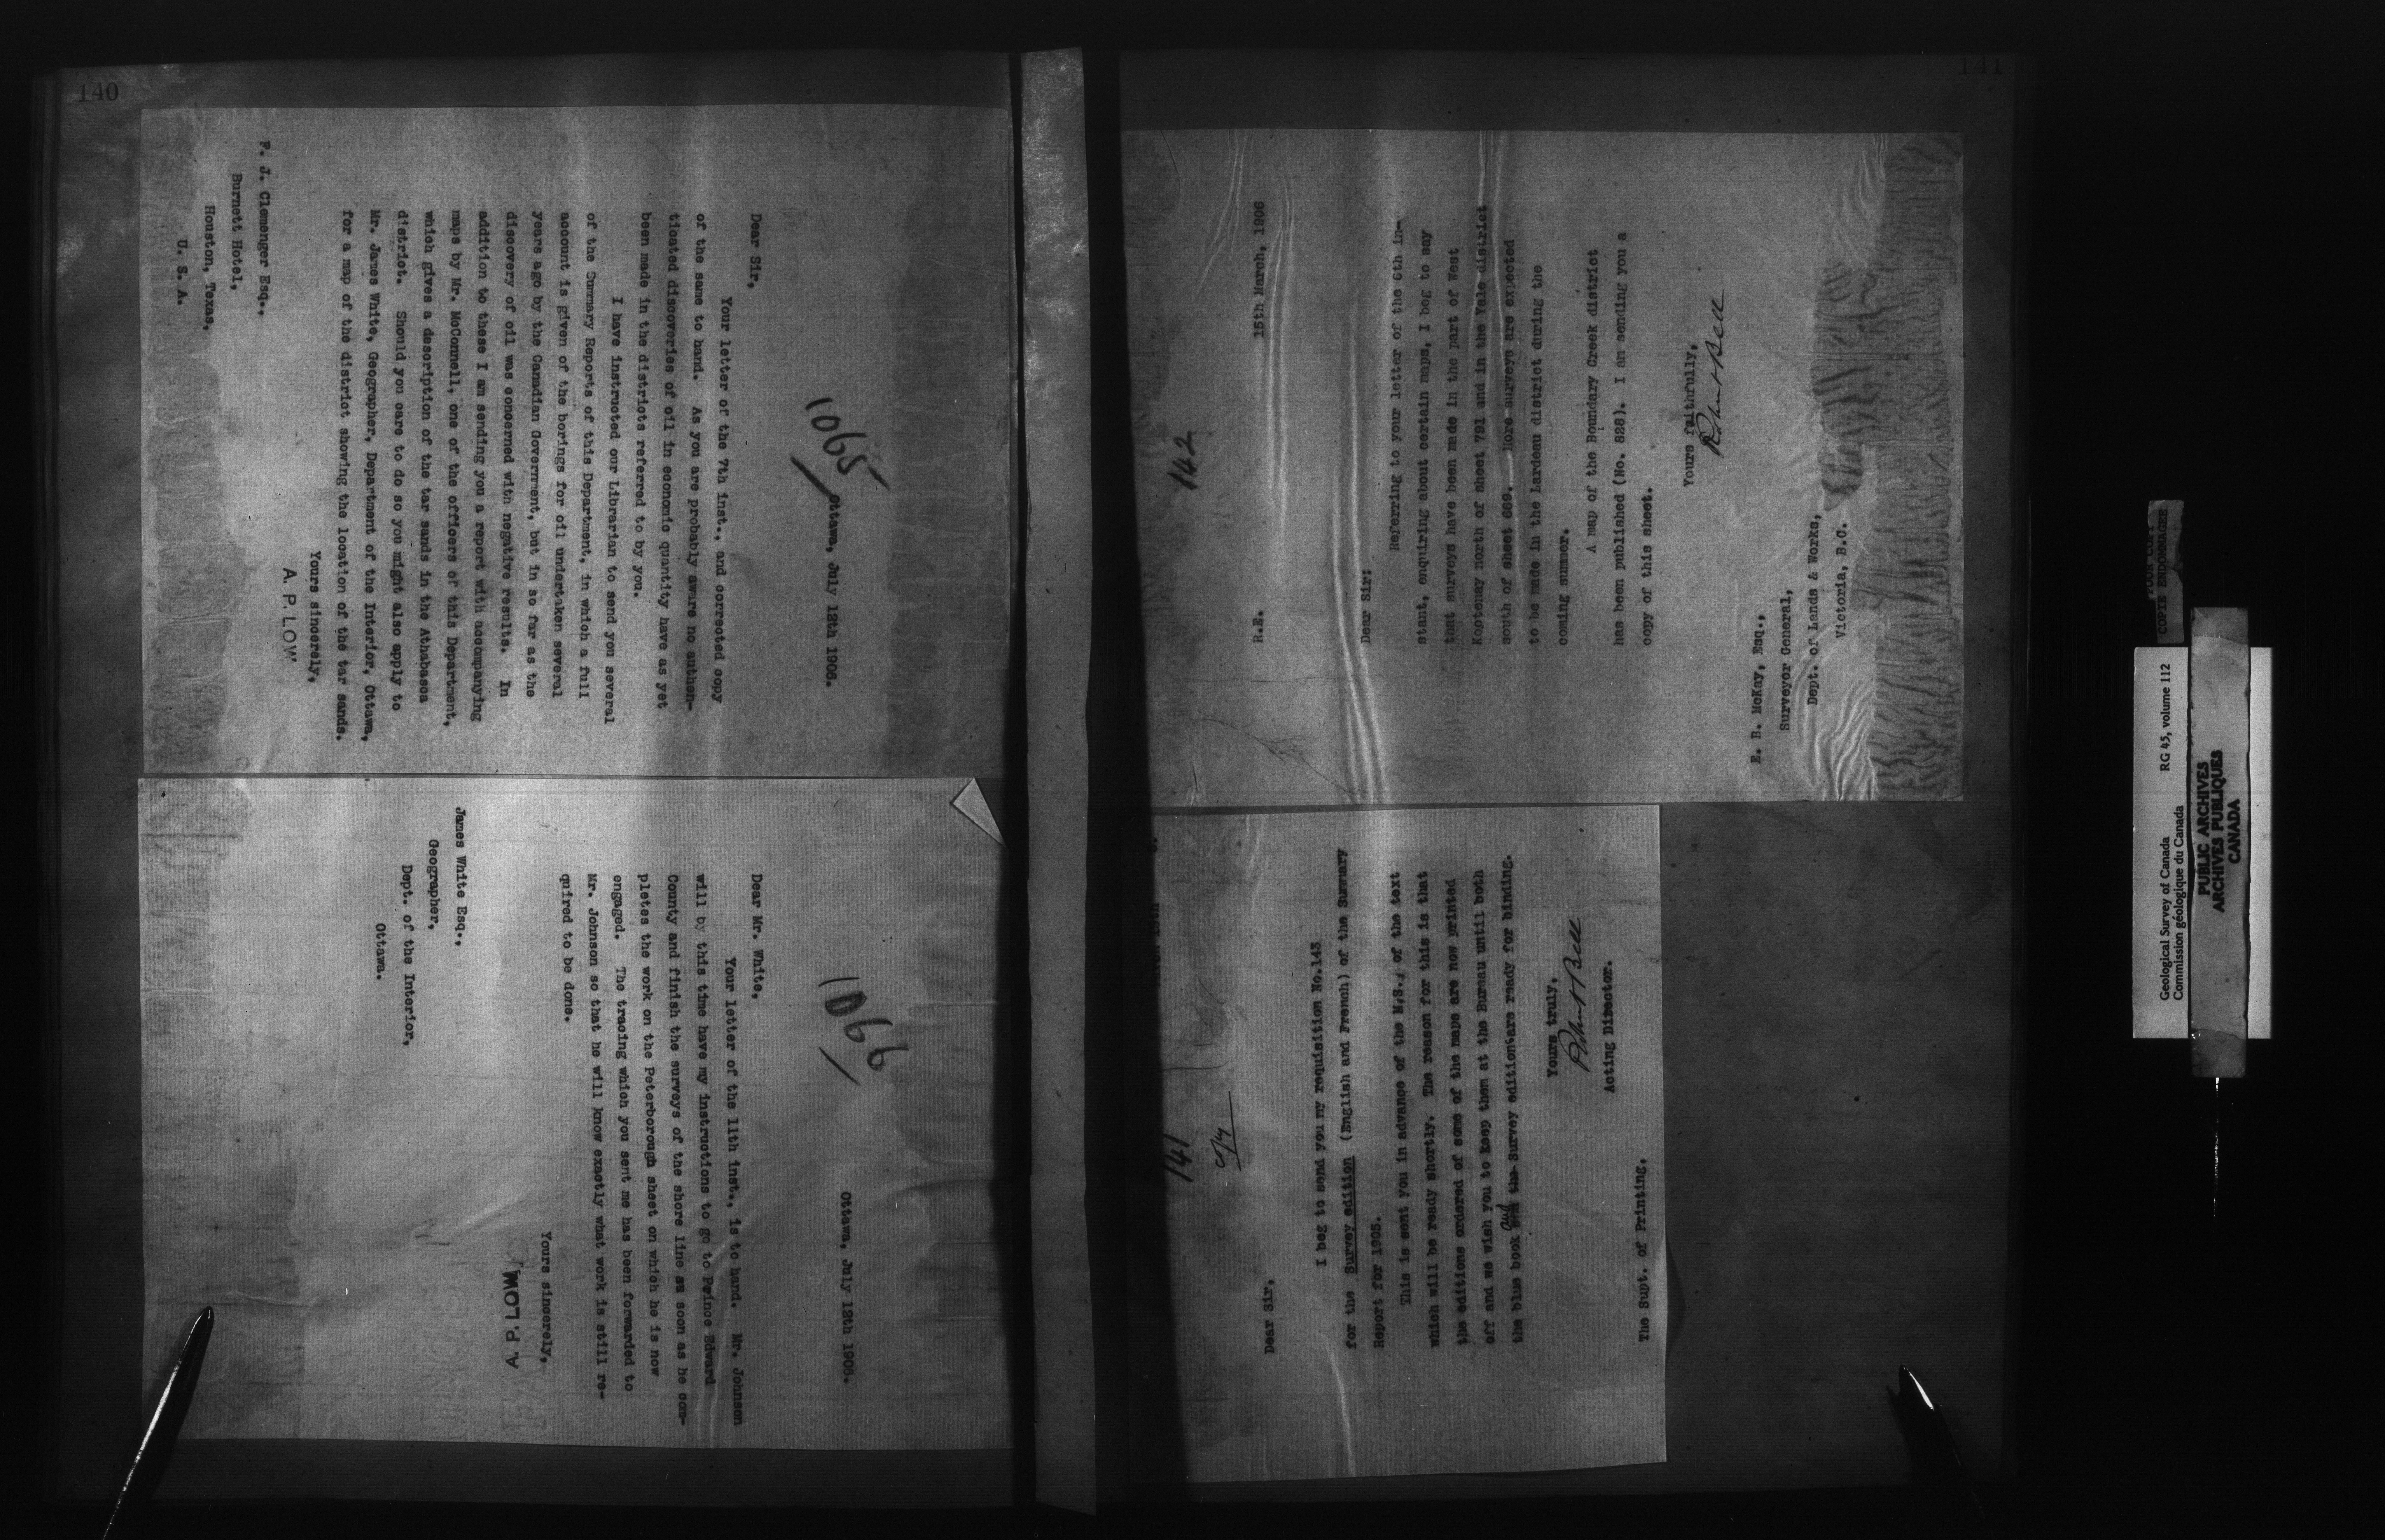 140
1065
Ottawa, July 12th 1906.
Dear Sir,
Your letter of the 7th inst., and corrected copy
of the same to hand. As you are probably aware no authen-
ticated discoveries of oil in economic quantity have as yet
been made in the districts referred to by you.
I have instructed our Librarian to send you several
of the Summary Reports of this Department, in which a full
account is given of the borings for oil undertaken several
years ago by the Canadian Government, but in so far as the
discovery of oil was concerned with negative results. In
addition to these I am sending you a report with accompanying
maps by Mr. McConnell, one of the officers of this Department,
which gives a description of the tar sands in the Athabasca
district. Should you care to do so you might also apply to
Mr. James White, Geographer, Department of the Interior, Ottawa,
for a map of the district showing the location of the tar sands.
Yours sincerely,
A. P. LOW
F. J. Clemenger Esq.,
Burnett Hotel,
Houston, Texas,
U. S. A.
1066
Ottawa, July 12th 1906.
Dear Mr. White,
Your letter of the 11th inst., is to hand. Mr. Johnson
will by this time have my instructions to go to Prince Edward
County and finish the surveys of the shore line as soon as he com-
pletes the work on the Peterborough sheet on which he is now
engaged. The tracing which you sent me has been forwarded to
Mr. Johnson so that he will know exactly what work is still re-
quired to be done.
Yours sincerely,
A. P. LOW
James White Esq.,
Geographer,
Dept. of the Interior,
Ottawa.
141
142
R.E. 15th March, 1906
Dear Sir:
Referring to your letter of the 6th in-
stant, enquiring about certain maps, I beg to say
that surveys have been made in the part of West
Kootenay north of sheet 791 and in the Yale district
south of sheet 669. More surveys are expected
to be made in the Lardeau district during the
coming summer.
A map of the Boundary Creek district
has been published (No. 828). I am sending you a
copy of this sheet.
Yours faithfully,
Robert Bell
E. B. McKay, Esq.,
Surveyor General,
Dept. of Lands & Works,
Victoria, B.C.
141
Dear Sir,
I beg to send you my requisition No.143
for the Survey edition (English and French) of the Summary
Report for 1905.
This is sent you in advance of the M.S., of the text
which will be ready shortly. The reason for this is that
the editions ordered of some of the maps are now printed
off and we wish you to keep them at the Bureau until both
the blue book and the Survey edition are ready for binding.
Yours truly,
Robert Bell
Acting Director.
The Supt. of Printing.
COPIE ENDOMMAGEE
Geological Survey of Canada RG 45, volume 112
Commission géologique du Canada
PUBLIC ARCHIVES
ARCHIVES PUBLIQUES
CANADA